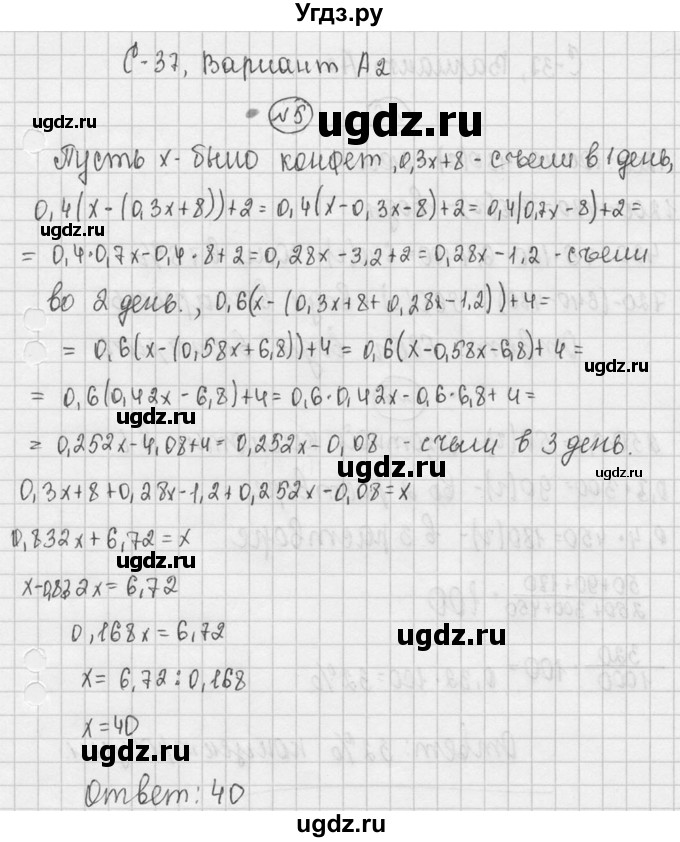 Угдз.ру
С-37, Вариант А2
№5
ugdz.ru
Пусть х - было конфет, 0,3х+8 - съели в 1 день,
0,4(х-(0,3х+8))+2=0,4(х-0,3х-8)+2=0,4(0,7х-8)+2=
= 0,4·0,7х-0,4·8+2=0,28х-3,2+2=0,28х-1,2 - съели
во 2 день., 0,6(х-(0,3х+8+0,28х-1,2))+4=
= 0,6(х-(0,58х+6,8))+4=0,6(х-0,58х-6,8)+4=
ugdz.ru
= 0,6(0,42х-6,8)+4=0,6·0,42х-0,6·6,8+4=
ugdz.ru
= 0,252х-4,08+4=0,252х-0,08 - съели в 3 день.
ugdz.ru
ugdz.ru
0,3х+8+0,28х-1,2+0,252х-0,08=х
0,832х+6,72=х
ugdz.ru
х-0,832х=6,72
0,168х=6,72
ugdz.ru
х=6,72:0,168
х=40
ugdz.ru
Ответ: 40
ugdz.ru